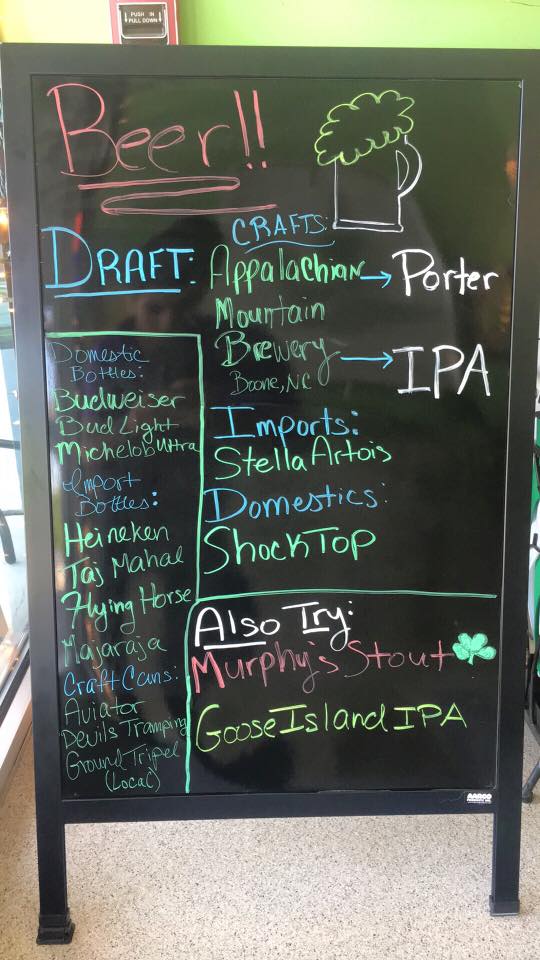 PUSH IN
PULL DOWN
Beer!!
DRAFT:
CRAFTS:
Appalachian → Porter
Mountain
Brewery → IPA
Boone, NC
Imports:
Stella Artois
Domestics:
Shock Top
Domestic
Bottles:
Budweiser
Bud Light
Michelob Ultra
Import
Bottles:
Heineken
Taj Mahal
Flying Horse
Majaraja
Craft Cans:
Aviator
Devils Tramping
Ground Tripel
(Local)
Also Try:
Murphy's Stout
Goose Island IPA
AARCO